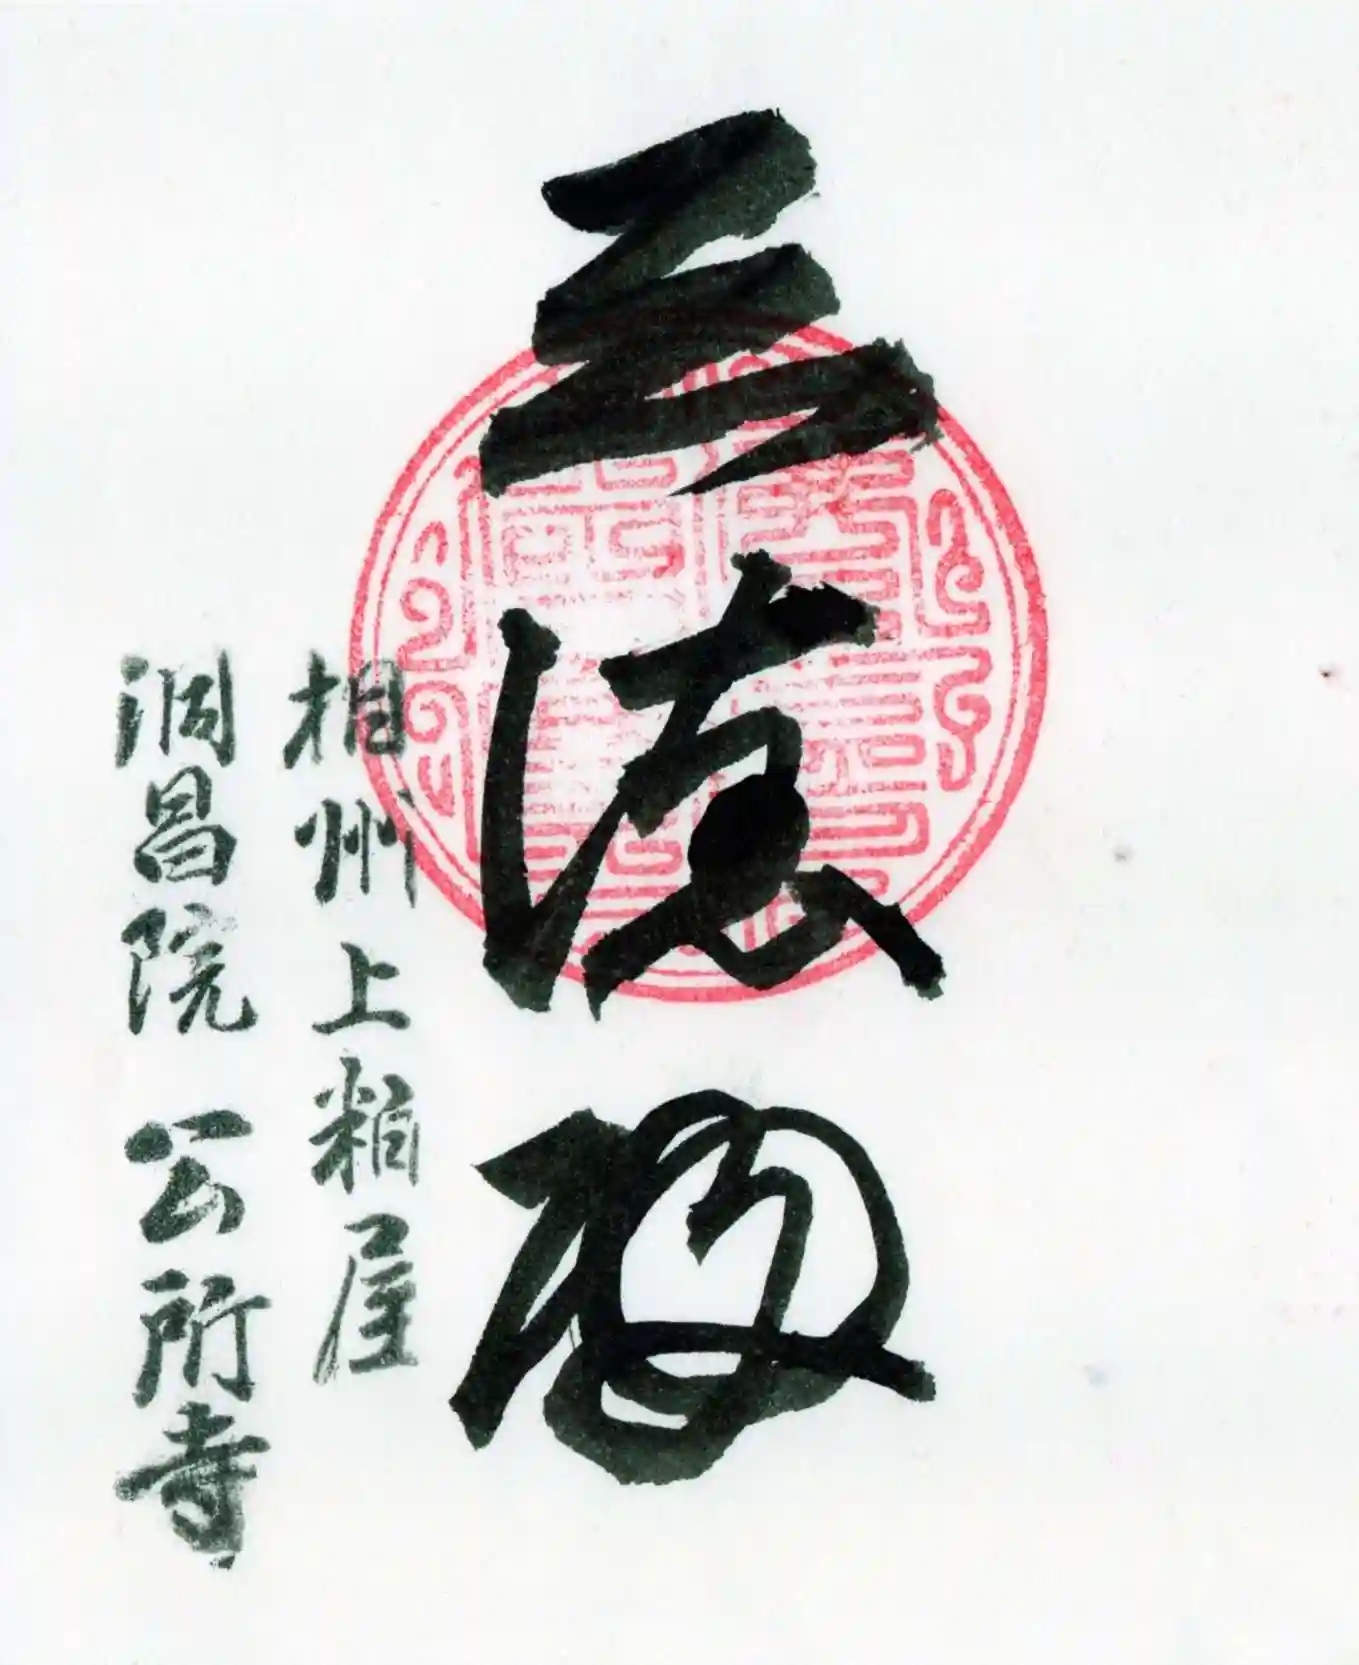 三
相州上粕屋
洞昌院 公所寺